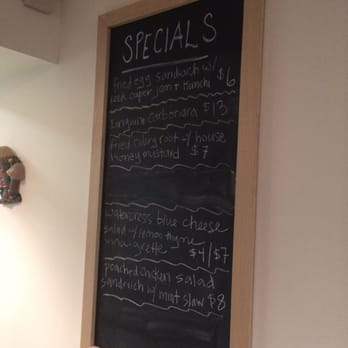 SPECIALS
fried egg sandwich w/
leek caper jam + Kimchi $6
linguini carbonara $13
fried celery root w/ house
honey mustard $7
watercress blue cheese
salad w/ lemon thyme
vinaigrette $4/$7
poached chicken salad
sandwich w/ mint slaw $8